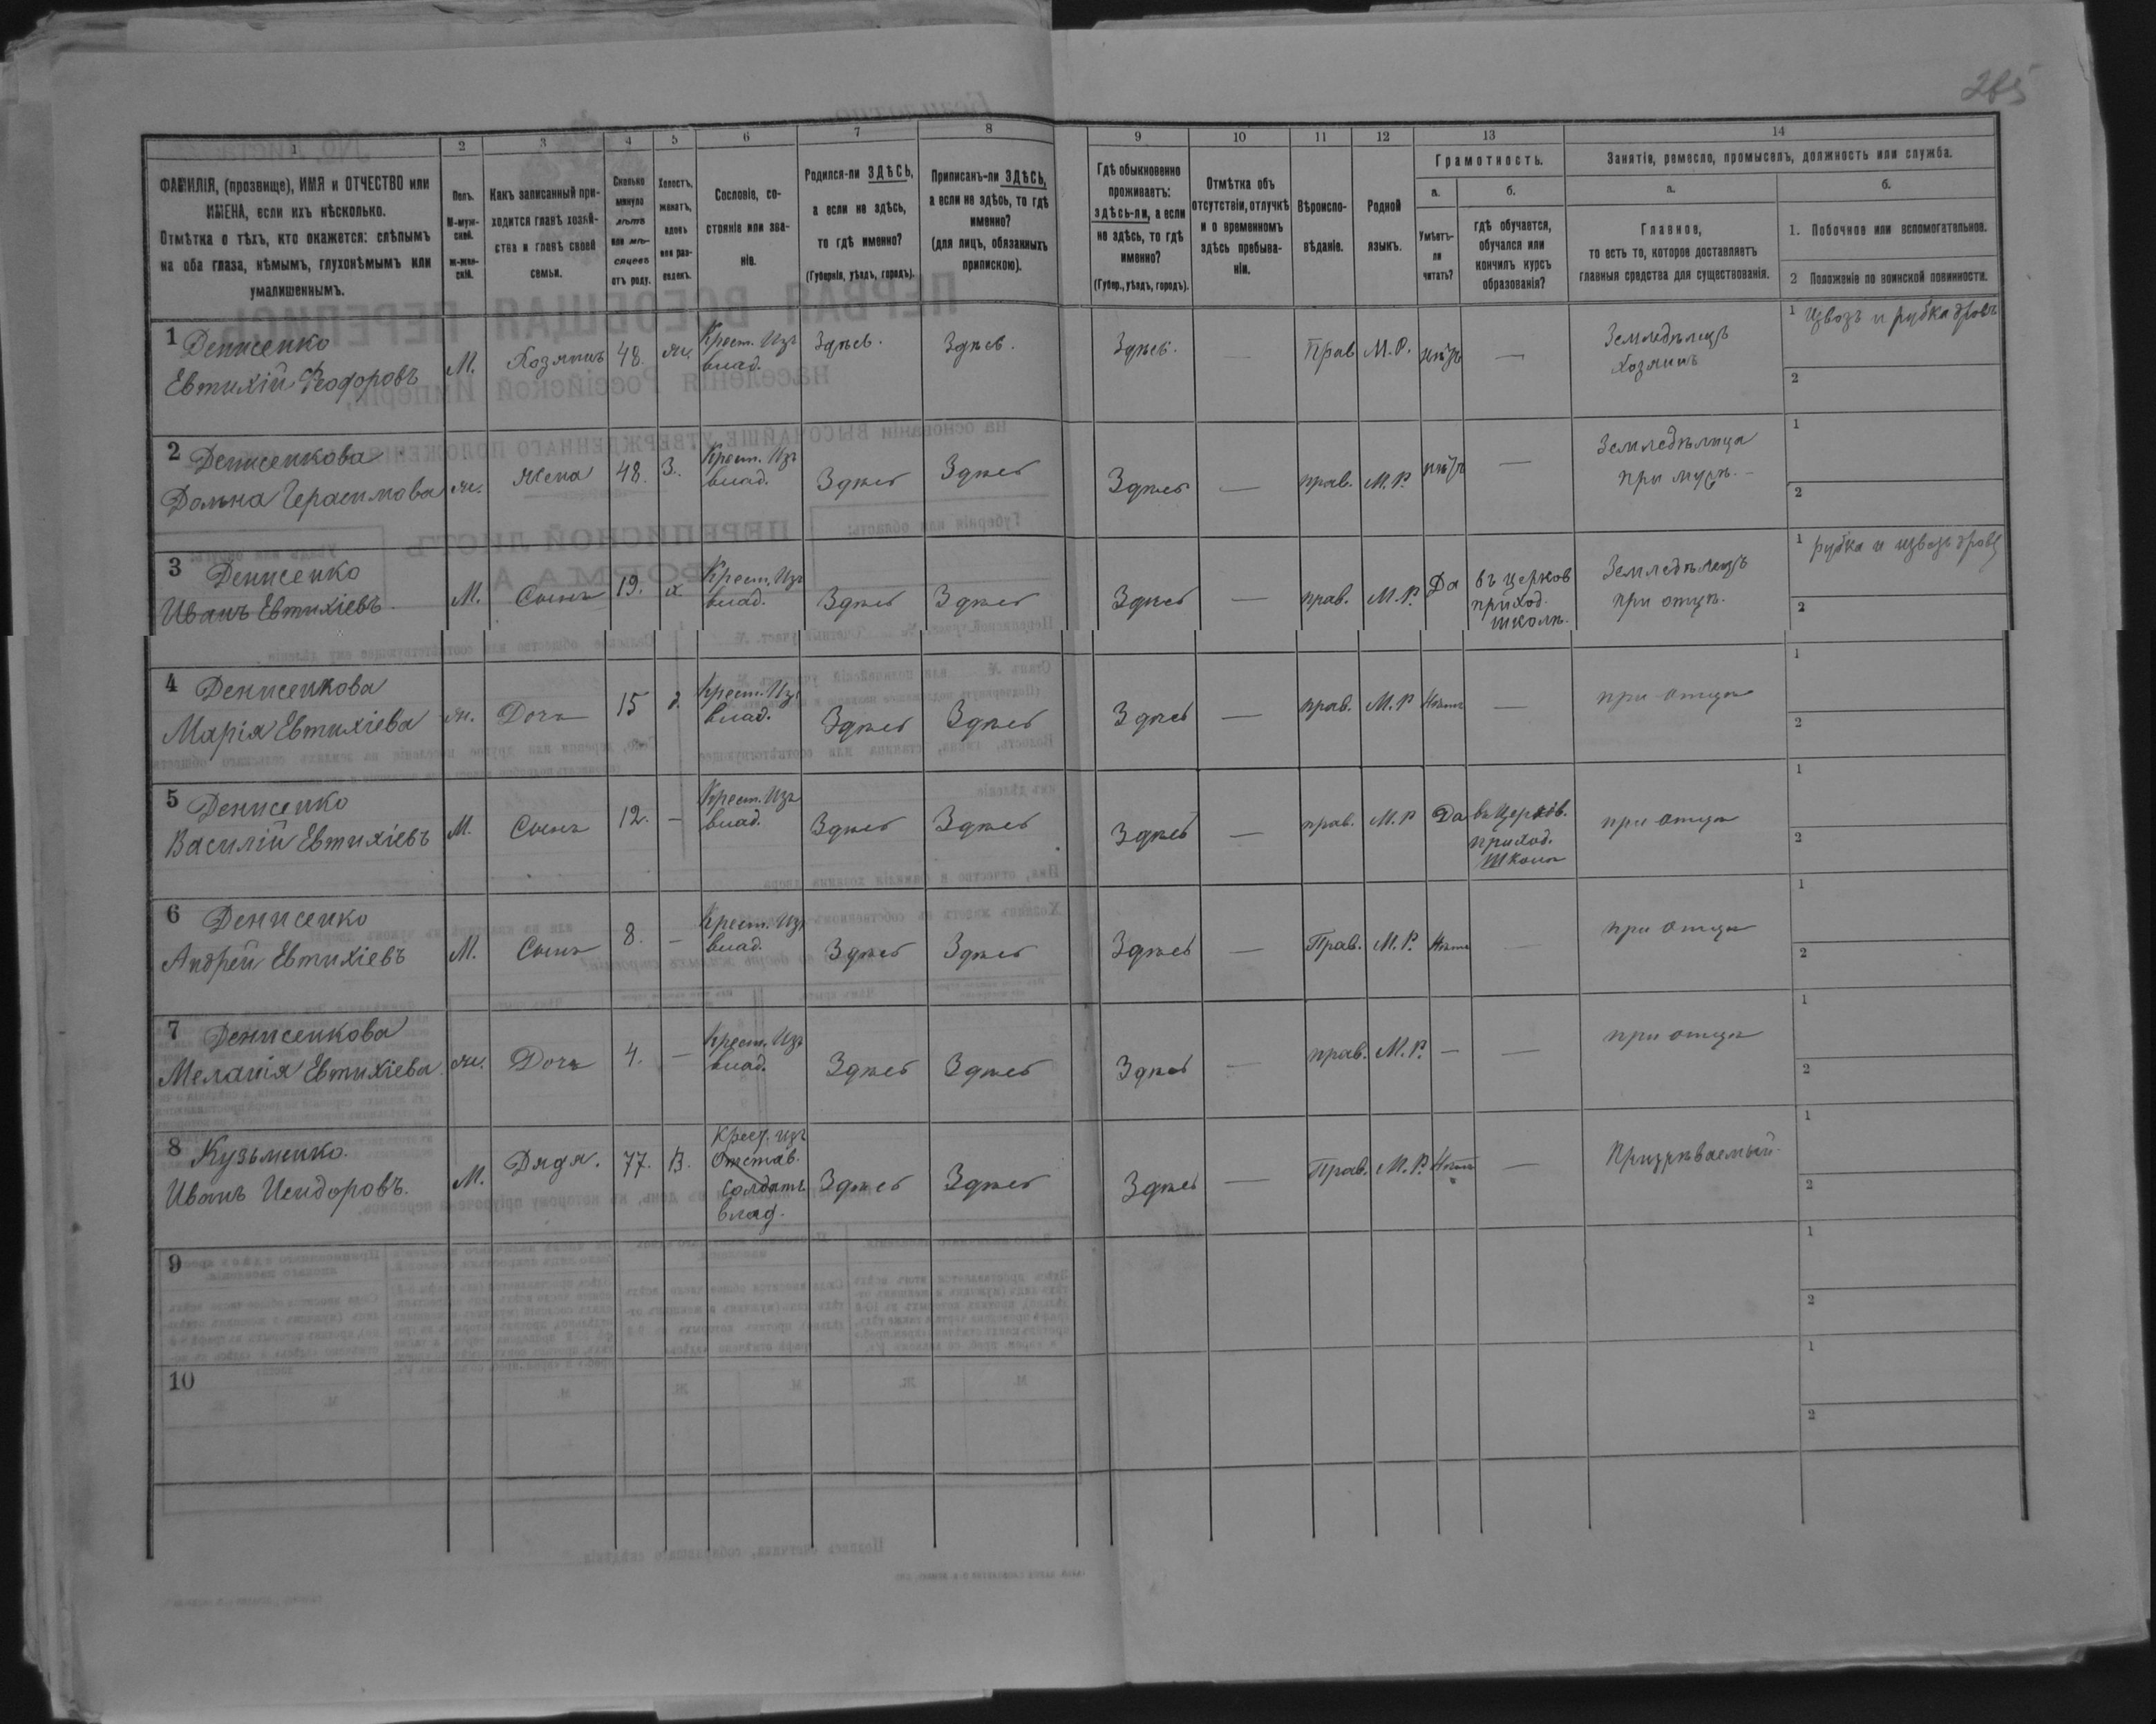 285
1 2 3 4 5 6 7 8 9 10 11 12 13 14
ФАМИЛІЯ, (прозвище), ИМЯ и ОТЧЕСТВО или
ИМЕНА, если ихъ нѣсколько.
Отмѣтка о тѣхъ, кто окажется: слѣпымъ
на оба глаза, нѣмымъ, глухонѣмымъ или
умалишеннымъ.
Полъ.
М-муж-
ской.
Ж-жен-
скій.
Какъ записанный при-
ходится главѣ хозяй-
ства и главѣ своей
семьи.
Сколько
минуло
лѣтъ
или мѣ-
сяцевъ
отъ роду.
Холостъ,
женатъ,
вдовъ
или раз-
веденъ.
Сословіе, со-
стояніе или зва-
ніе.
Родился-ли ЗДѢСЬ,
а если не здѣсь,
то гдѣ именно?
(Губернія, уѣздъ, городъ).
Приписанъ-ли ЗДѢСЬ,
а если не здѣсь, то гдѣ
именно?
(для лицъ, обязанныхъ
припискою).
Гдѣ обыкновенно
проживаетъ:
здѣсь-ли, а если
не здѣсь, то гдѣ
именно?
(Губер., уѣздъ, городъ).
Отмѣтка объ
отсутствіи, отлучкѣ
и о временномъ
здѣсь пребыва-
ніи.
Вѣроиспо-
вѣданіе.
Родной
языкъ.
Грамотность.
а.
Умѣетъ-
ли
читать?
б.
гдѣ обучается,
обучался или
кончилъ курсъ
образованія?
Занятіе, ремесло, промыселъ, должность или служба.
а.
Главное,
то есть то, которое доставляетъ
главныя средства для существованія.
б.
1. Побочное или вспомогательное.
2 Положеніе по воинской повинности.
1 Денисенко
Евтихій Феодоровъ
М.
Хозяинъ
48.
ж.
Крест. Изъ
влад.
Здѣсь.
Здѣсь.
Здѣсь.
—
Прав
М.Р.
нѣтъ
—
Земледѣлецъ
Хозяинъ
1 Извозъ и рубка дровъ
2
2 Денисенкова
Домна Герасимова
ж.
жена
48.
З.
Крест. Изъ
влад.
Здѣсь
Здѣсь
Здѣсь
—
прав.
М.Р.
нѣтъ
—
Земледѣлица
при мужѣ. —
1
2
3 Денисенко
Иванъ Евтихіевъ.
М.
Сынъ
19.
х
Крест. Изъ
влад.
Здѣсь
Здѣсь
Здѣсь
—
прав.
М.Р.
Да
въ церков
приход.
школѣ.
Земледѣлецъ
при отцѣ.
1 рубка и извозъ дровъ
2
4 Денисенкова
Марія Евтихіева
ж.
Дочь
15
д.
Крест. Изъ
влад.
Здѣсь
Здѣсь
Здѣсь
—
прав.
М.Р
Нѣтъ
—
при отцѣ
1
2
5 Денисенко
Василій Евтихіевъ
М.
Сынъ
12.
—
Крест. Изъ
влад.
Здѣсь
Здѣсь
Здѣсь
—
прав.
М.Р
Да
въ Церков.
приход.
Школѣ
при отцѣ
1
2
6 Денисенко
Андрей Евтихіевъ
М.
Сынъ
8.
—
Крест. Изъ
влад.
Здѣсь
Здѣсь
Здѣсь
—
Прав.
М.Р.
Нѣтъ
—
при отцѣ
1
2
7 Денисенкова
Меланія Евтихіева.
ж.
Дочь
4.
—
Крест. Изъ
влад.
Здѣсь
Здѣсь
Здѣсь
—
прав.
М.Р.
—
—
при отцѣ
1
2
8 Кузьменко.
Иванъ Исидоровъ.
М.
Дядя.
77.
В.
Крест. изъ
Отстав.
Солдатъ
влад.
Здѣсь
Здѣсь
Здѣсь
—
Прав.
М.Р.
Нѣтъ
—
Призрѣваемый.
1
2
9
1
2
10
1
2